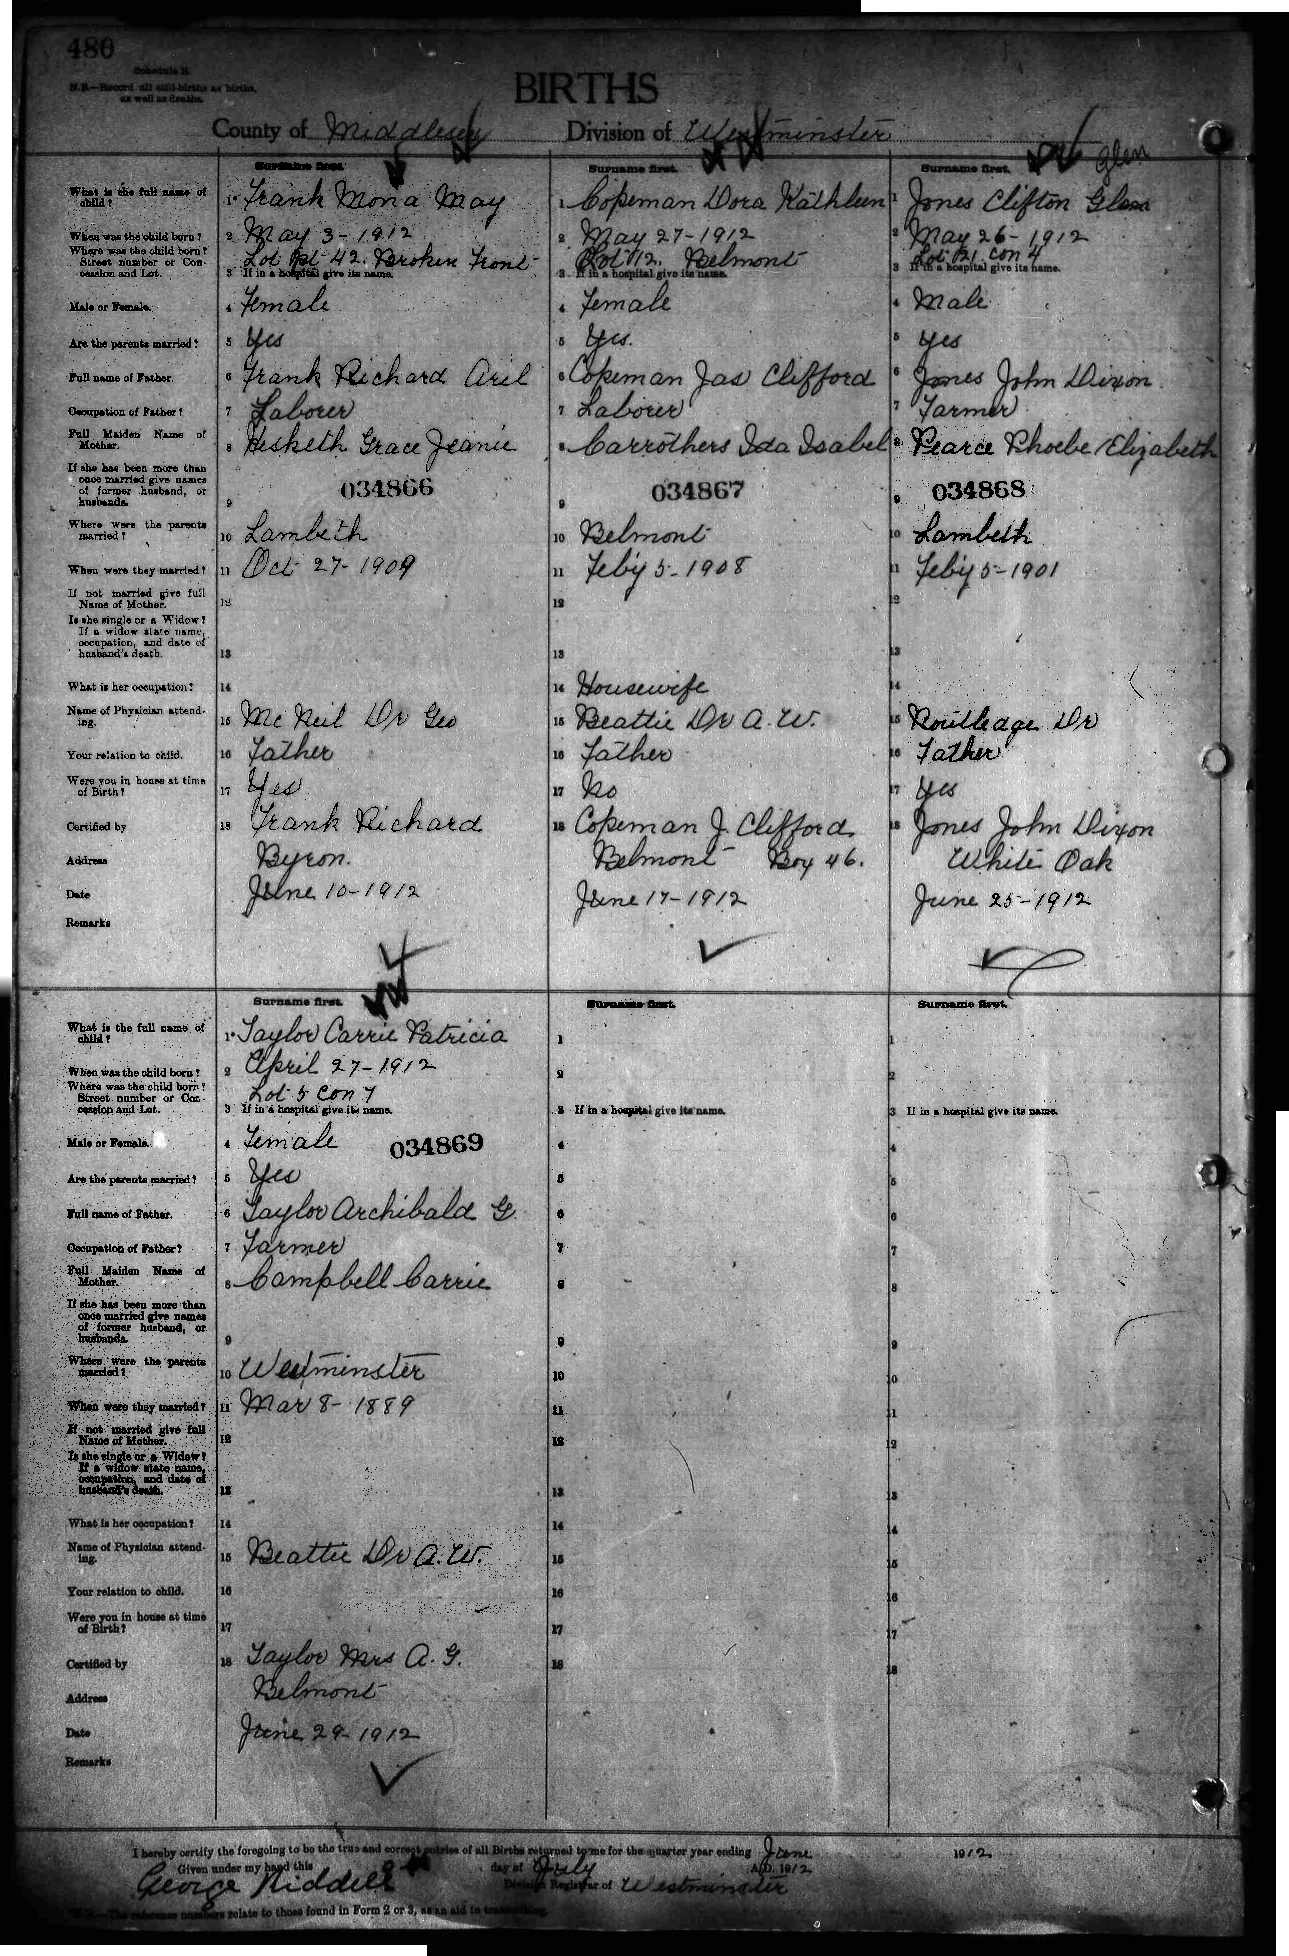 480
Schedule B.
N.B.—Record all still-births as births,
as well as deaths.
BIRTHS
County of Middlesex Division of Westminster
Surname first. Surname first. Surname first. Glen
What is the full name of child? 1 Frank Mona May 1 Copeman Dora Kathleen 1 Jones Clifton Glenn
When was the child born? 2 May 3-1912 2 May 27-1912 2 May 26-1912
Where was the child born? Street number or Concession and Lot. Lot Pt 42. Broken Front Lot 12. Belmont Lot 21 Con 4
3 If in a hospital give its name. 3 If in a hospital give its name. 3 If in a hospital give its name.
Male or Female. 4 Female 4 Female 4 Male
Are the parents married? 5 Yes 5 Yes. 5 Yes
Full name of Father. 6 Frank Richard Aril 6 Copeman Jas Clifford 6 Jones John Dixon
Occupation of Father? 7 Laborer 7 Laborer 7 Farmer
Full Maiden Name of Mother. 8 Hesketh Grace Jeanie 8 Carrothers Ida Isabel 8 Pearce Phoebe Elizabeth
If she has been more than once married give names of former husband, or husbands. 9 034866 9 034867 9 034868
Where were the parents married? 10 Lambeth 10 Belmont 10 Lambeth
When were they married? 11 Oct 27-1909 11 Feb'y 5-1908 11 Feb'y 5-1901
If not married give full Name of Mother. 12 12 12
Is she single or a Widow? If a widow state name, occupation, and date of husband's death. 13 13 13
What is her occupation? 14 14 Housewife 14
Name of Physician attending. 15 McNeil Dr Geo 15 Beattie Dr A. W. 15 Routledge Dr
Your relation to child. 16 Father 16 Father 16 Father
Were you in house at time of Birth? 17 Yes 17 No 17 Yes
Certified by 18 Frank Richard 18 Copeman J. Clifford 18 Jones John Dixon
Address Byron. Belmont Box 46. White Oak
Date June 10-1912 June 17-1912 June 25-1912
Remarks
Surname first. Surname first. Surname first.
What is the full name of child? 1 Taylor Carrie Patricia 1 1
When was the child born? 2 April 27-1912 2 2
Where was the child born? Street number or Concession and Lot. Lot 5 Con 7
3 If in a hospital give its name. 3 If in a hospital give its name. 3 If in a hospital give its name.
Male or Female. 4 Female 034869 4 4
Are the parents married? 5 Yes 5 5
Full name of Father. 6 Taylor Archibald G 6 6
Occupation of Father? 7 Farmer 7 7
Full Maiden Name of Mother. 8 Campbell Carrie 8 8
If she has been more than once married give names of former husband, or husbands. 9 9 9
Where were the parents married? 10 Westminster 10 10
When were they married? 11 Mar 8-1889 11 11
If not married give full Name of Mother. 12 12 12
Is she single or a Widow? If a widow state name, occupation, and date of husband's death. 13 13 13
What is her occupation? 14 14 14
Name of Physician attending. 15 Beattie Dr A. W. 15 15
Your relation to child. 16 16 16
Were you in house at time of Birth? 17 17 17
Certified by 18 Taylor Mrs A. G. 18 18
Address Belmont
Date June 29-1912
Remarks
I hereby certify the foregoing to be the true and correct entries of all Births returned to me for the quarter year ending June 1912
Given under my hand this day of July A.D. 1912
George Riddell Division Registrar of Westminster
N.B.—The reference numbers relate to those found in Form 2 or 3, as an aid to transcribing.